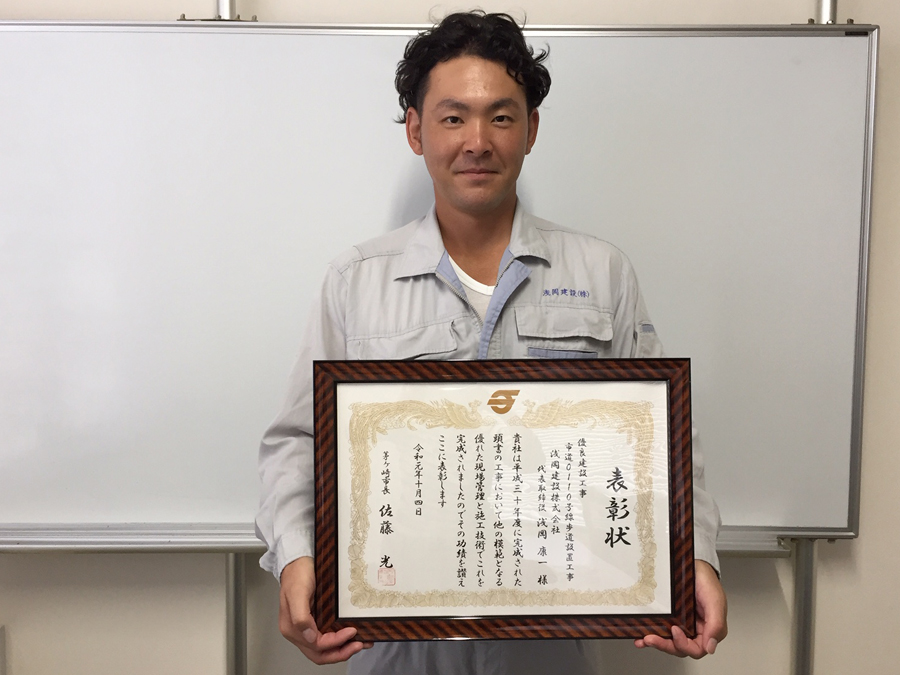 浅岡建設(株)
表彰状
優良建設工事
市道0110号線歩道設置工事
浅岡建設株式会社
代表取締役 浅岡 康一 様
貴社は平成三十年度に完成された
頭書の工事において他の模範となる
優れた現場管理と施工技術でこれを
完成されましたのでその功績を讃え
ここに表彰します
令和元年十月四日
茅ヶ崎市長 佐藤 光